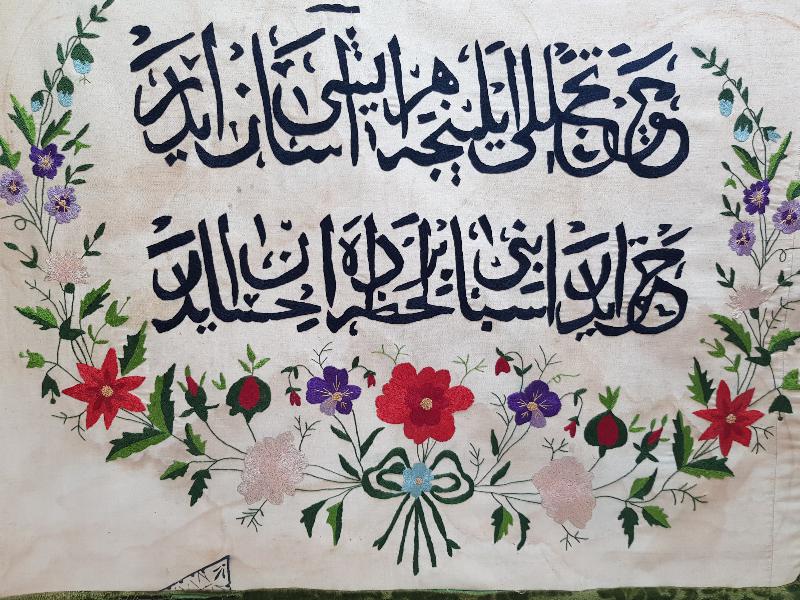 حق تجلی ایلینجه هر ایشی آسان ایدر
خلق ایدر اسبابنی بر لحظه‌ده احسان ایدر